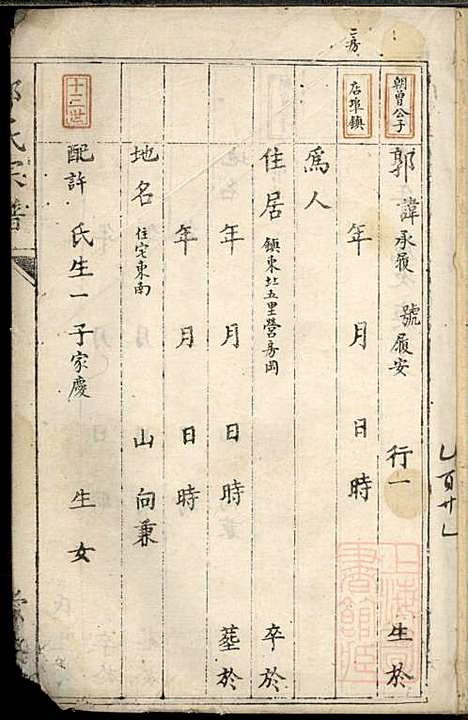 二房
朝曾公子
郭 諱承履 號履安 行一 生於
店埠鎮
年 月 日 時
爲人
住居 鎮東北五里營房岡 卒於
年 月 日 時 塟於
年 月 日 時
地名 住宅東南 山 向兼
十二世
配許 氏生一子家慶 生女
氏宗譜